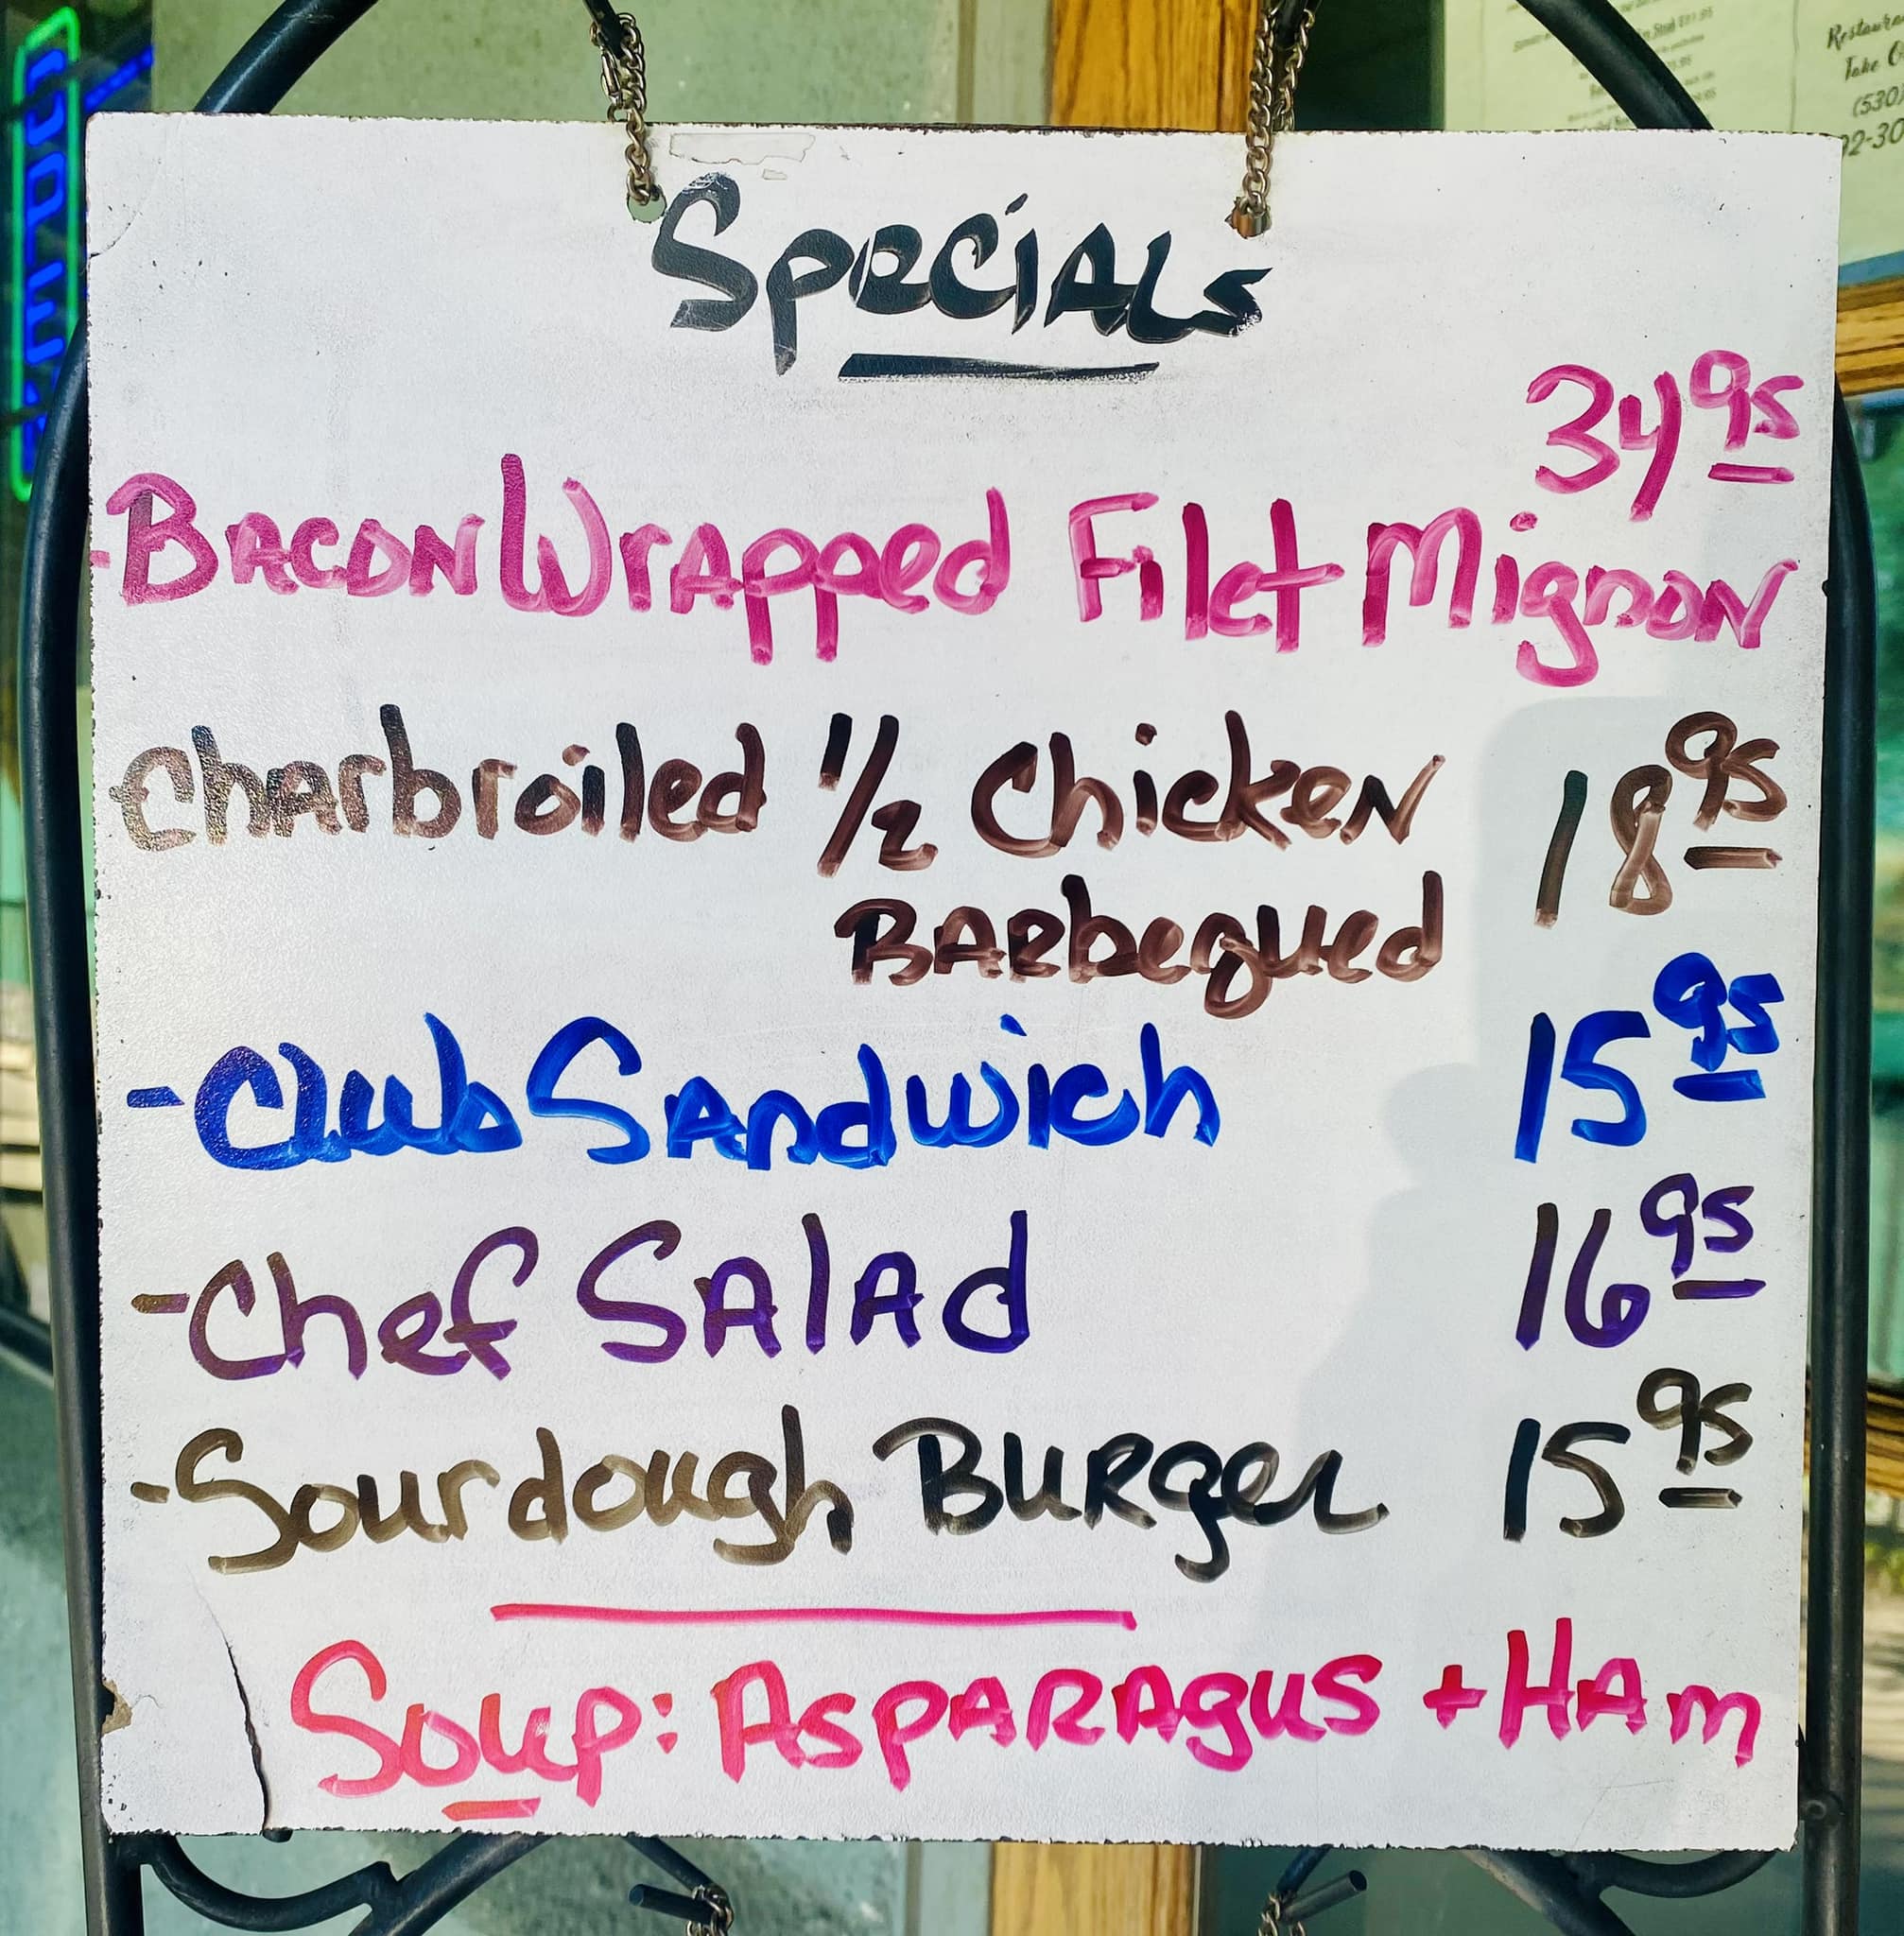 OPEN
Restaura
Take O
(530)
92-30
Specials
34 95
-Bacon Wrapped Filet Mignon
Charbroiled 1/2 Chicken 18 95
Barbequed
-Club Sandwich 15 95
-Chef Salad 16 95
-Sourdough Burger 15 95
Soup: Asparagus + Ham